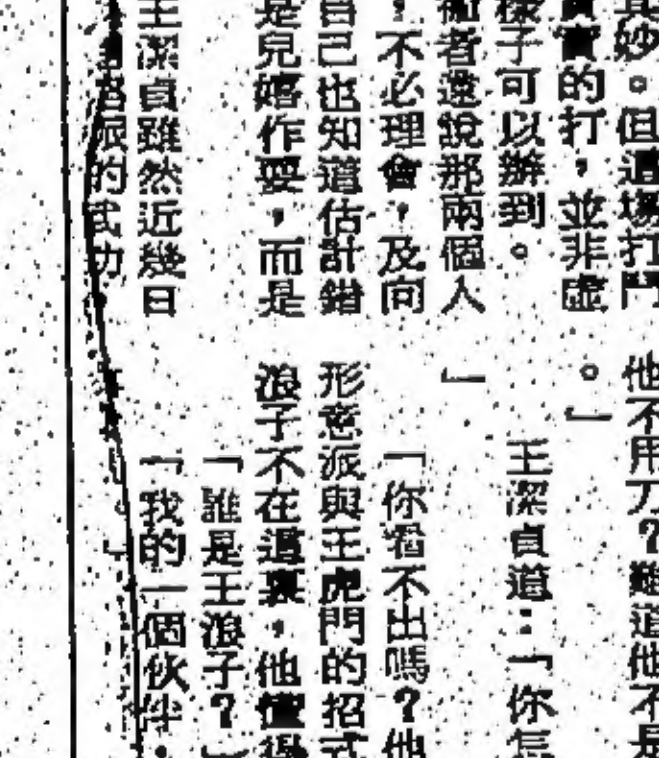 其妙。但這場打鬥
實實的打，並非虛
樣子可以辦到。
衛者還說那兩個人
，不必理會，及向
自己也知道估計錯
是兒嬉作耍，而是
王潔貞雖然近幾日
的武功，
他不用刀？難道他不是
。」
王潔貞道：「你怎
」
「你看不出嗎？他
形意派與王虎門的招式
浪子不在這裏，他懂得
「誰是王浪子？」
「我的一個伙伴，